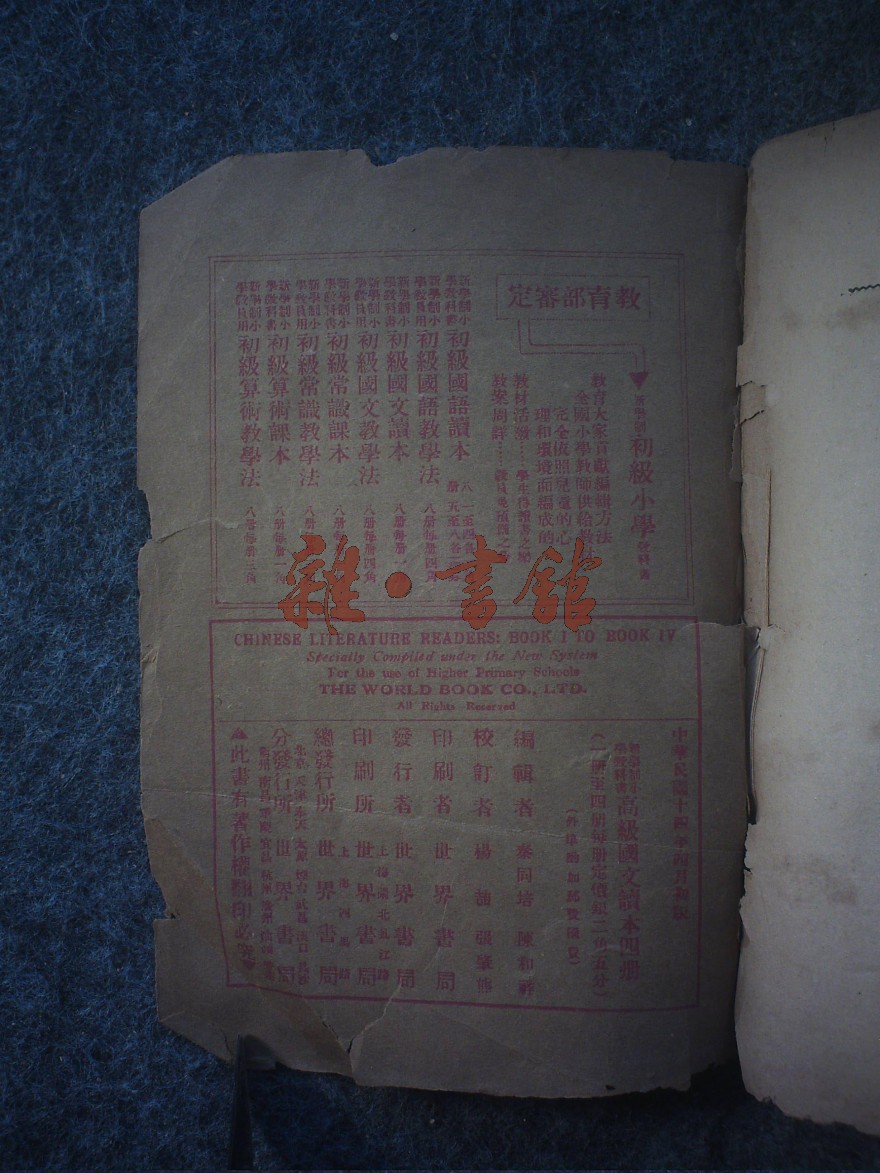 教育部審定
初級小學
教育大家貢獻編輯方法
全國小學教師供給教材
完全依照兒童的心
理和環境而編成的
教材活潑……
教案周詳……
新學制小學教科書 初級國語讀本
新學制小學教員用 初級國語教學法
新學制小學教科書 初級國文讀本
新學制小學教員用 初級國文教學法
新學制小學教科書 初級常識課本
新學制小學教員用 初級常識教學法
新學制小學教科書 初級算術課本
新學制小學教員用 初級算術教學法
雜·書館
CHINESE LITERATURE READERS: BOOK I TO BOOK IV
Specially Compiled under the New System
For the use of Higher Primary Schools
THE WORLD BOOK CO., LTD.
All Rights Reserved
中華民國十四年四月初版
高級國文讀本四冊
(一冊至四冊每冊定價銀二角五分)
(外埠酌加郵費匯費)
編輯者 秦同培 陳和祥
校訂者 楊 張肇熊
印刷者 世界書局
發行者 世界書局
印刷所 世界書局
總發行所 世界書局
上海四馬路
分發行所 世界書局
此書有著作權翻印必究